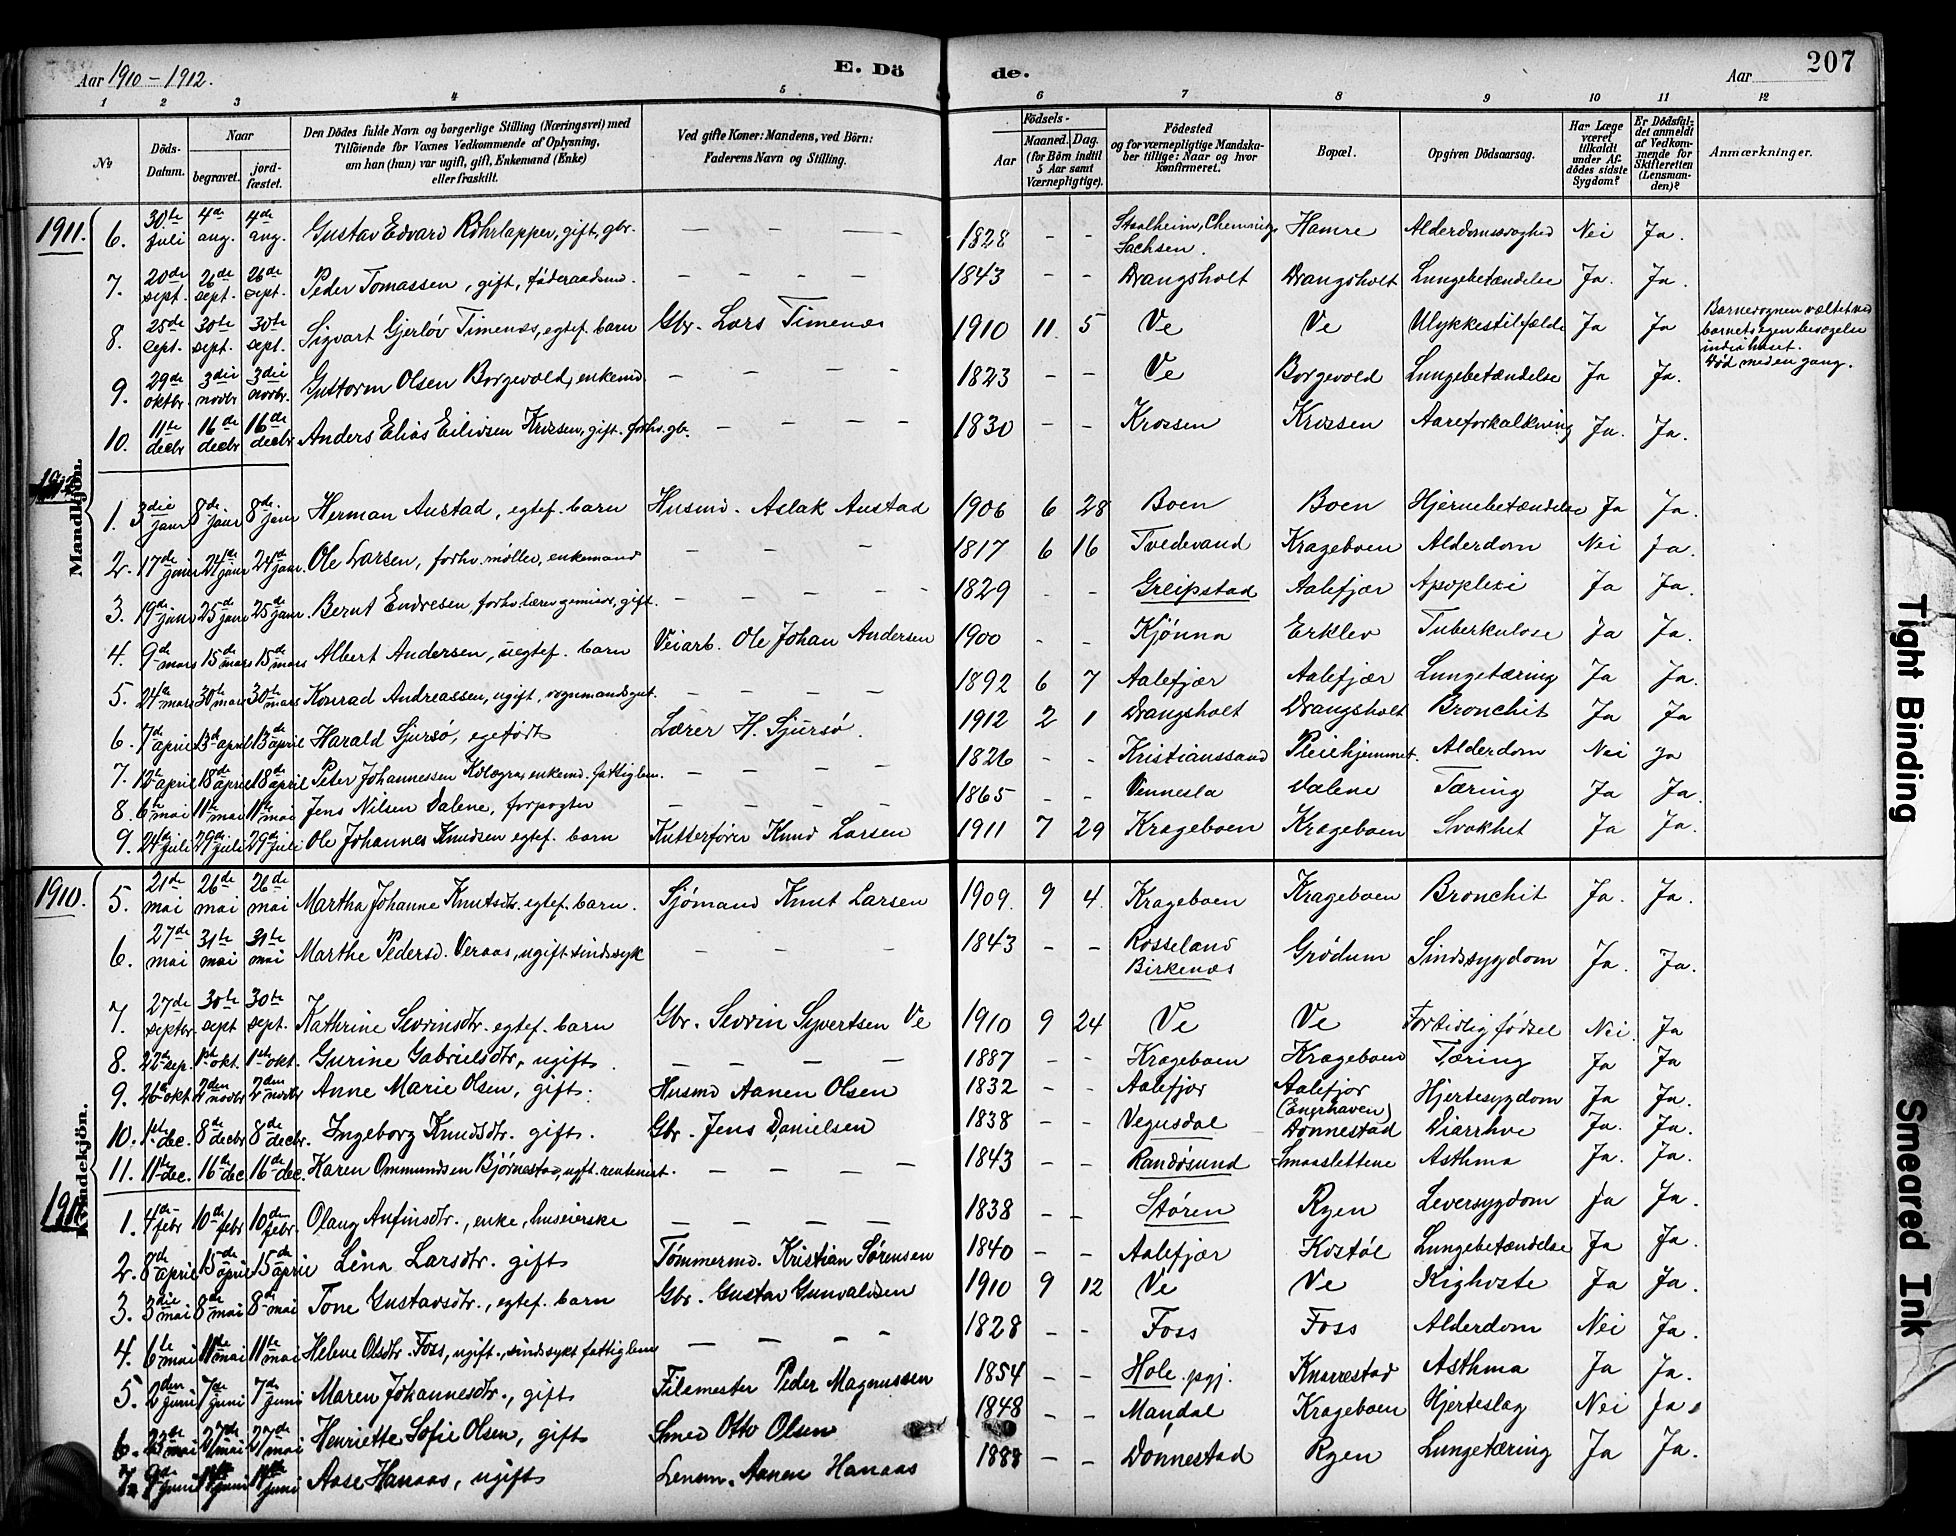 Aar 1910 - 1912.
E. Dö
de.
Aar
207
1 2 3 4 5 6 7 8 9 10 11 12
№
Döds-Datum.
Naar
begravet.
jord-fæstet.
Den Dödes fulde Navn og borgerlige Stilling (Næringsvei) med
Tilföiende for Voxnes Vedkommende af Oplysning,
om han (hun) var ugift, gift, Enkemand (Enke)
eller fraskilt.
Ved gifte Koner: Mandens, ved Börn:
Faderens Navn og Stilling.
Födsels-
Aar
Maaned. Dag.
(for Börn indtil
5 Aar samt
Værnepligtige).
Födested
og for værnepligtige Mandska-
ber tillige: Naar og hvor
konfirmeret.
Bopæl.
Opgiven Dödsaarsag.
Har Læge
været
tilkaldt
under Af-
dödes sidste
Sygdom?
Er Dödsfal-
det anmeldt
af Vedkom-
mende for
Skifteretten
(Lensman-
den)?
Anmærkninger.
Mandkjön.
1911. 6. 30te juli 4de aug. 4de aug. Gustav Edvard Röhrlapper, gift, gbr. — — — — 1828 - - Staalheim, Chemnitz Sachsen. Hamre Alderdomssvaghed Nei Ja.
7. 20de sept. 26de sept. 26de sept. Peder Tomassen, gift, føderaadsmd. — — — — 1843 - - Drangsholt Drangsholt Lungebetændelse Ja. Ja.
8. 25de sept. 30te sept. 30te sept. Sigvart Gjerløv Timenæs, egtef. barn Gbr. Lars Timenæs 1910 11 5 Ve Ve Ulykkestilfælde Ja Ja Barnevognen væltet ved barnets egen bevægelse ind i huset. Død med en gang.
9. 29de oktbr. 3die novbr 3die novbr. Guttorm Olsen Borgevold, enkemd. — — — — 1823 - - Ve Borgevold Lungebetændelse Ja Ja.
10. 11te decbr 16de decbr 16de decbr Anders Elias Eilivsen Krossen, gift. forhv. gb. — — — — 1830 - - Krossen Krossen Aareforkalkning Ja. Ja.
1912
1. 3die janr 8de janr 8de janr Herman Austad, egtef. barn Husmd. Aslak Austad 1906 6 28 Boen Boen Hjernebetændelse Ja Ja.
2. 17de janr 24de janr 24de janr. Ole Larsen, forhv. møller, enkemand — — — 1817 6 16 Tvedevand Krageboen Alderdom Nei Ja.
3. 19de janr 25de janr 25de janr. Bernt Endresen, forhv. lærer, gift. — — — — 1829 - - Greipstad Aalefjær Apoplexi Ja Ja.
4. 9de mars 15de mars 15de mars Albert Andersen, uegtef. barn Veiarb. Ole Johan Andersen 1900 - - Kjønna Erklev Tuberkulose Ja Ja.
5. 24de mars 30te mars 30te mars Konrad Andreassen, ugift, vognmandsgut. — — — — 1892 6 7 Aalefjær Aalefjær Lungetæring Ja Ja.
6. 7de april 13de april 13de april Harald Sjursø, egefødt Lærer H. Sjursø. 1912 2 1 Drangsholt Drangsholt Bronchit Ja Ja
7. 12te april 18de april 18de april Peder Johannessen, enkemd. fattiglem. — — — — 1826 - - Kristianssand Pleiehjemmet. Alderdom Nei Ja
8. 6te mai 11te mai 11te mai Jens Nilsen Dalene, forpagter — — — — 1865 - - Vennesla Dalene Tæring Ja Ja.
9. 24de juli 29de juli 29de juli Ole Johannes Knudsen egtef. barn Kutterfører Knud Larsen 1911 7 29 Krageboen Krageboen Svakhet Ja Ja.
Kvindekjön.
1910. 5. 21de mai 26de mai 26de mai Martha Johanne Knutsdtr. egtef. barn. Sjømand Knut Larsen 1909. 9 4. Krageboen Krageboen Bronchit Ja. Ja.
6. 27de mai 31te mai 31te mai Marthe Pedersd. Veraas, ugift sindssyk — — — 1843 - - Rosseland Birkenæs Grødum Sindssygdom Ja. Ja.
7. 27de septbr. 30te sept 30te sept. Kathrine Sevrinsdtr. egtef. barn Gbr. Sevrin Syvertsen Ve 1910 9 24 Ve Ve For tidlig fødsel Nei. Ja
8. 22de sep. 1ste okt. 1ste okt. Gurine Gabrielsdtr, ugift. — — — 1887 - - Krageboen Krageboen Tæring Ja Ja
9. 26de okt 2den novbr 2den novbr Anne Marie Olsen, gift. Husmd Aanen Olsen 1832 - - Aalefjær Aalefjær (Engehaven) Hjertesygdom Ja Ja.
10. 1ste dec. 8de decbr 8de decbr. Ingeborg Knudsdtr. gift. Gbr. Jens Danielsen 1838 - - Vegusdal Donnestad Diarrhoe Ja. Ja.
11. 11te dec. 16de dec 16de dec. Karen Ommundsen Bjørnestad, ugft. rentenist. — — — — 1843 - - Randøsund Smaaslettene Asthma Ja. Ja.
1911
1. 4de febr 10de febr 10de febr. Olaug Anfinsdtr., enke, huseierske — — — — 1838 - - Støren Ryen Leversygdom Ja Ja.
2. 8de april 15de april 15de april Lina Larsdtr. gift Tømmermd. Kristian Sørensen 1840 - - Aalefjær Kostøl Lungebetændelse Ja Ja.
3. 3die mai 8de mai 8de mai Tone Gustavsdtr., egtef. barn Gbr. Gustav Gunvaldsen 1910 9 12 Ve Ve Kighoste Ja Ja.
4. 6te mai 11te mai 11te mai Helene Olsdtr. Foss, ugift., sindssykt fattiglem — — — 1828 - - Foss Foss Alderdom Nei Ja.
5. 2den juni 7de juni 7de juni Maren Johannesdtr., gift Filemester Peder Magnussen 1854 - - Hole pgj. Knarestad Asthma Ja Ja.
6. 23de mai 27de mai 27de mai Henriette Sofie Olsen, gift Smed Otto Olsen 1848 - - Mandal Krageboen Hjerteslag Nei Ja.
7. 9de juni 14de juni 14de juni Aase Hanaas, ugift Lensm. Aanen Hanaas 1888 - - Donnestad Ryen Lungetæring Ja Ja.
Tight Binding
Smeared Ink